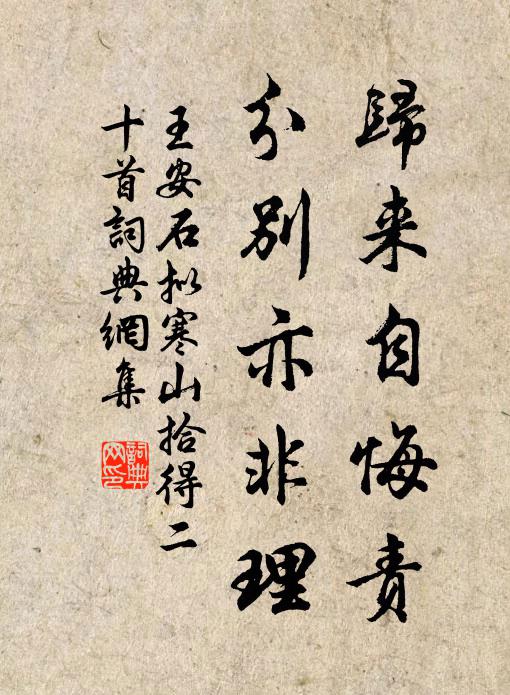 歸来自悔責
分别亦非理
王安石拟寒山拾得二
十首詞典網集
詞典網印